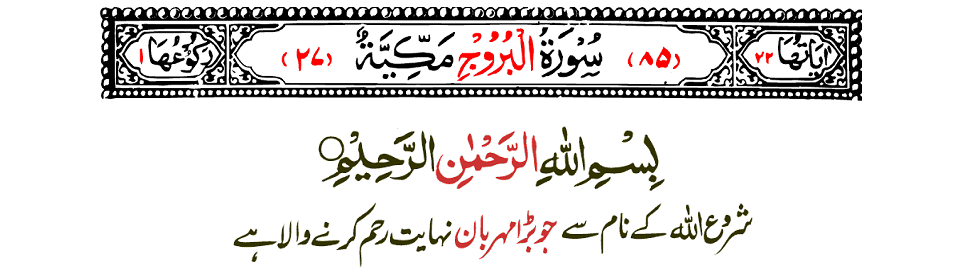 اٰيَاتُهَا ٢٢ (٨٥) سُوْرَةُ الْبُرُوْجِ مَكِّيَّةٌ (٢٧) رُكُوْعُهَا ١
بِسْمِ اللّٰهِ الرَّحْمٰنِ الرَّحِيْمِ
شروع اللہ کے نام سے جو بڑا مہربان نہایت رحم کرنے والا ہے